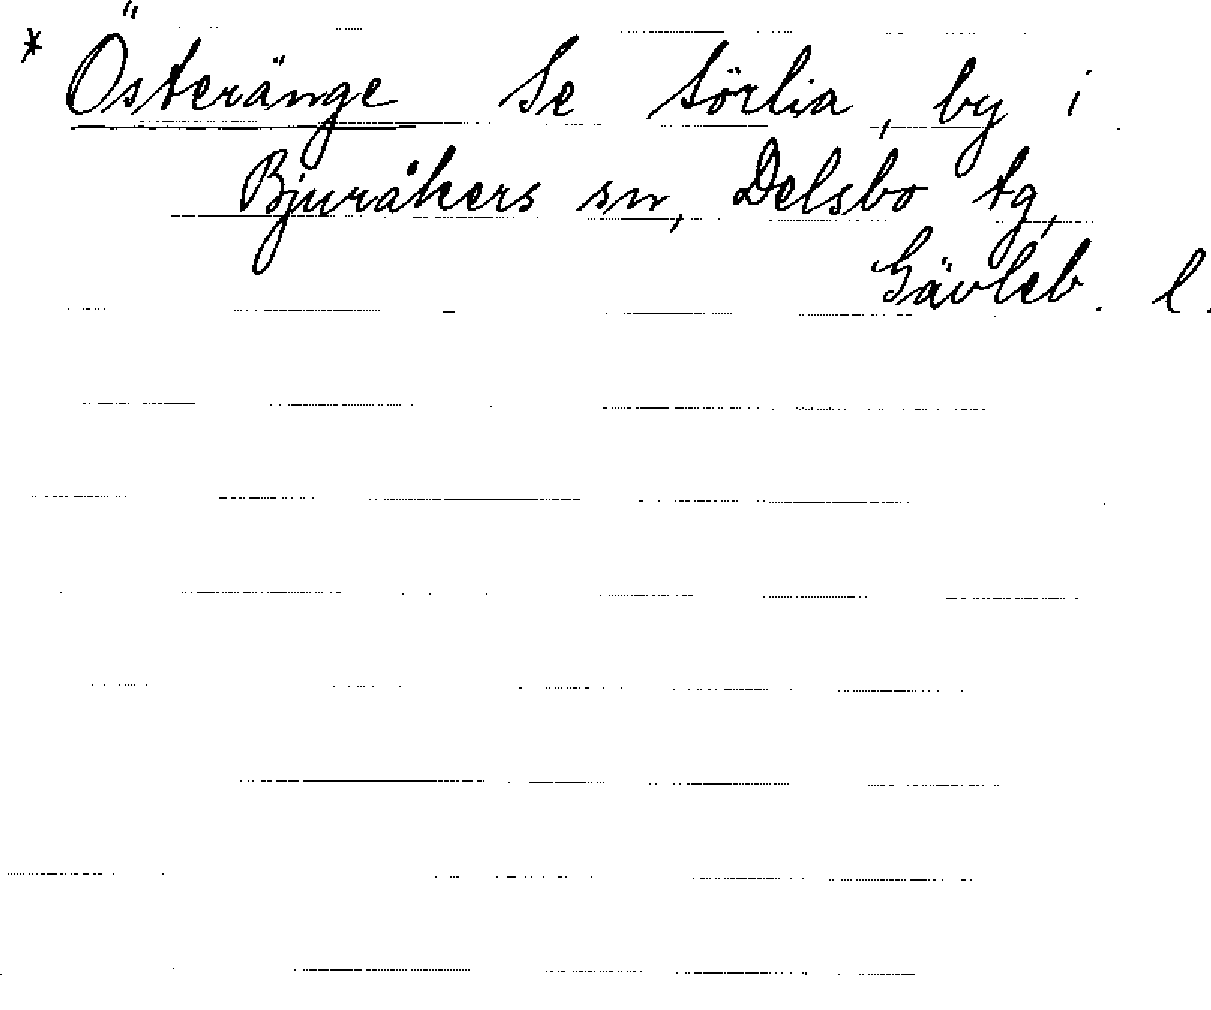 * Österänge Se Sörlia, by i
Bjuråkers sn, Delsbo tg,
Gävleb. l.